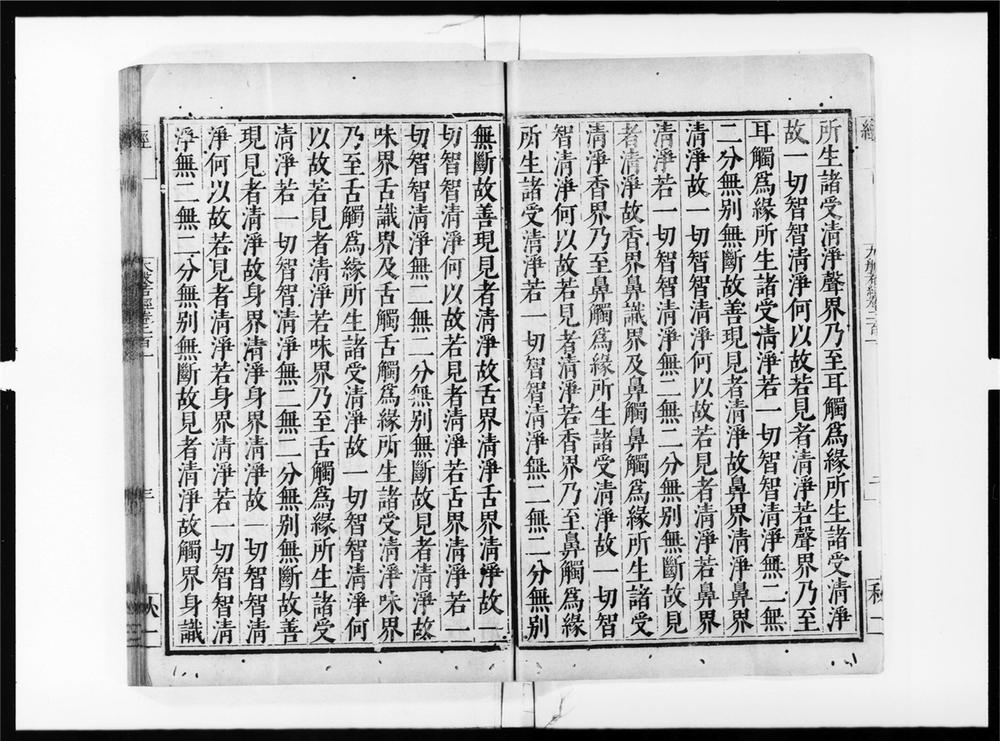 所生諸受清淨聲界乃至耳觸爲緣所生諸受清淨
故一切智智清淨何以故若見者清淨若聲界乃至
耳觸爲緣所生諸受清淨若一切智智清淨無二無
二分無別無斷故善現見者清淨故鼻界清淨鼻界
清淨故一切智智清淨何以故若見者清淨若鼻界
清淨若一切智智清淨無二無二分無別無斷故見
者清淨故香界鼻識界及鼻觸鼻觸爲緣所生諸受
清淨香界乃至鼻觸爲緣所生諸受清淨故一切智
智清淨何以故若見者清淨若香界乃至鼻觸爲緣
所生諸受清淨若一切智智清淨無二無二分無別
無斷故善現見者清淨故舌界清淨舌界清淨故一
切智智清淨何以故若見者清淨若舌界清淨若一
切智智清淨無二無二分無別無斷故見者清淨故
味界舌識界及舌觸舌觸爲緣所生諸受清淨味界
乃至舌觸爲緣所生諸受清淨故一切智智清淨何
以故若見者清淨若味界乃至舌觸爲緣所生諸受
清淨若一切智智清淨無二無二分無別無斷故善
現見者清淨故身界清淨身界清淨故一切智智清
淨何以故若見者清淨若身界清淨若一切智智清
淨無二無二分無別無斷故見者清淨故觸界身識
經
大般若經卷二百一
三
秋一